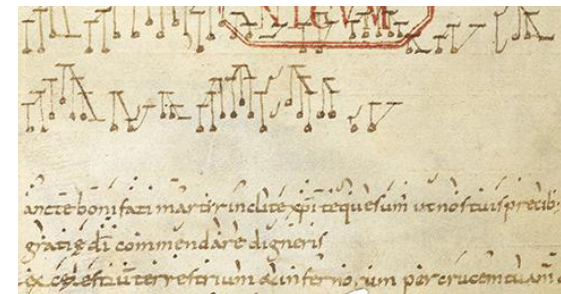 ancte bonifati martir inclite xp̄i te quesum̄ ut nos tuis precib;
gratię dī commendare digneris
ex cęlestiū terrestrium & infernorum per crucem tuam